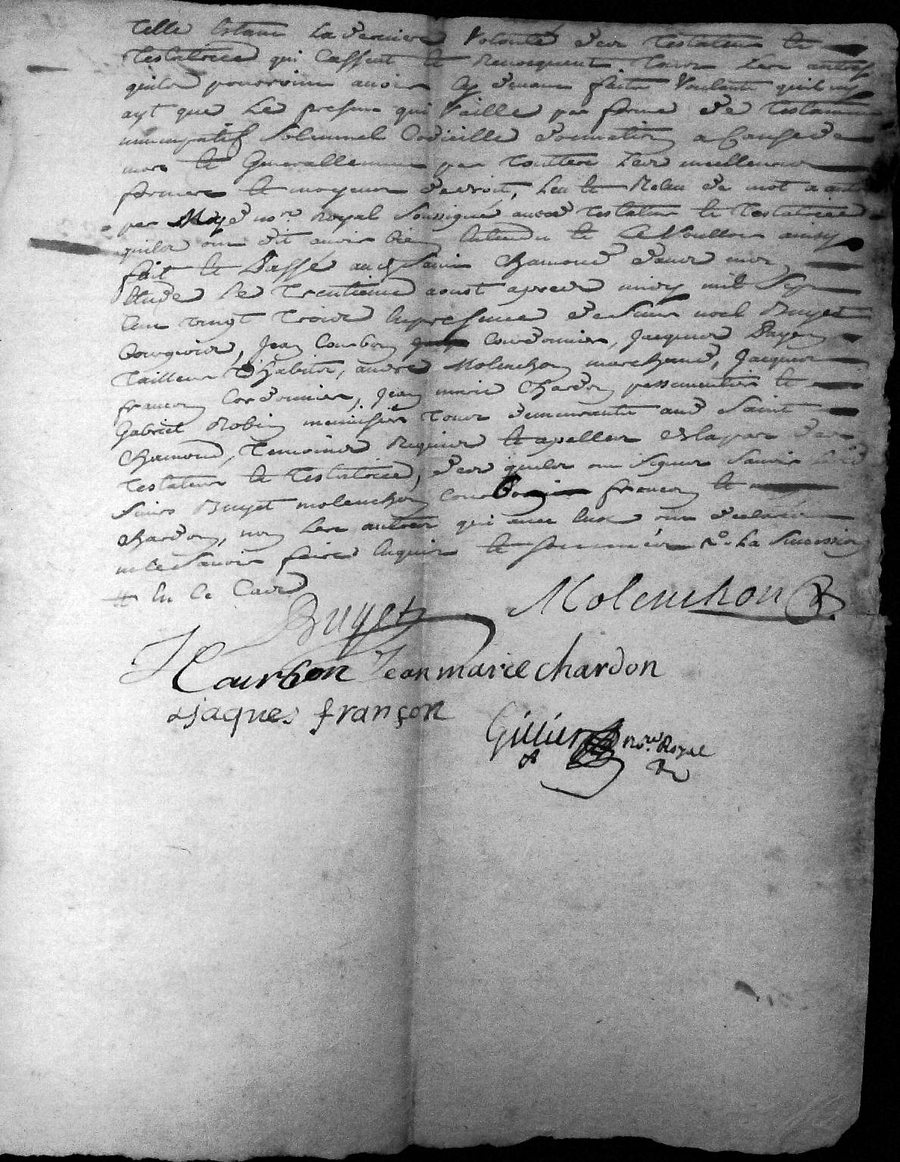 telle estant la derniere Volonté des testateur et
testatrice qui Cassent et Revocquent tous les autres
quils pourroint avoir cy devant faits Voulants quil ny
ayt que le presant qui Vaille par forme de testament
nuncupatif Solemnel Codicille donnation a Cause de
mort et Generallement par touttes les meilleures
formes et moyens de droit, Leu et Releu de mot a autre
par Moy d nore Royal Soussigné auxd testateur et testatrice
quils ont dit avoir bien Entendu et le Vouloir ainsy
fait et Passé aud Saint Chamond dans mon
Etude le trentieme aoust apres midy mil Sept
Cent vingt trois En presence de Sieurs noel Buyet
Bourgeois, Jean Courbon Cordonnier, Jacques Payen
tailleur d'habits, andré Molenchon marchand, Jacques
françon Cordonnier, Jean marie Chardon passementier et
Gabriel Robin menuisier tous demeurants aud Saint
Chamond, temoins Requis et apellés de la part des
testateur et testatrice, des quels ont Signé Savoir lesd
Sieurs Buyet molenchon Courbon françon et
Chardon, non les autres qui avec eux ont declaré
ne le Savoir faire Enquis et sommés Ro. la Succession
En ce Cas
Buyet Molenchon
J Courbon Jean marie chardon
Jaques françon
Gillier nore. Royal